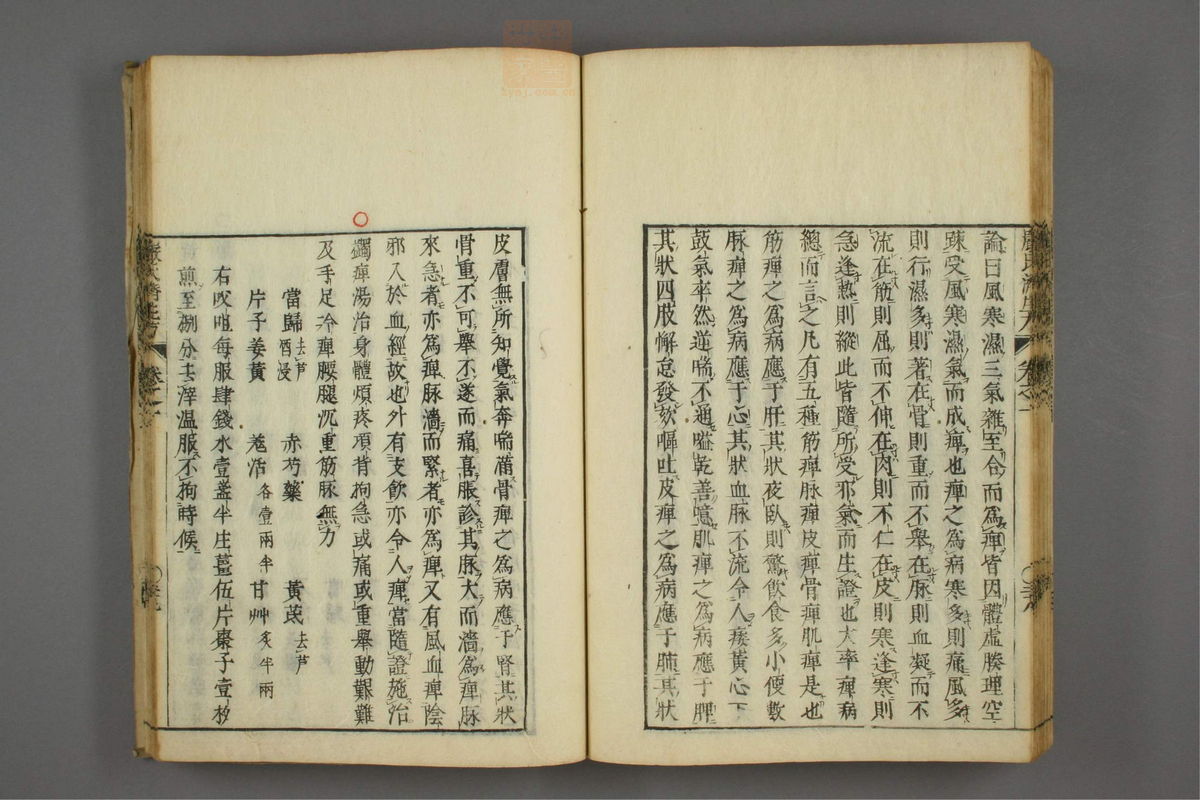 論曰風寒濕三氣雜至合而爲痺皆因體虛腠理空
踈受風寒濕氣而成痺也痺之爲病寒多則痛風多
則行濕多則著在骨則重而不舉在脉則血凝而不
流在筋則屈而不伸在肉則不仁在皮則寒逢寒則
急逢熱則縱此皆隨所受邪氣而生證也大率痺病
總而言之凡有五種筋痺脉痺皮痺骨痺肌痺是也
筋痺之爲病應于肝其狀夜臥則驚飲食多小便數
脉痺之爲病應于心其狀血脉不流令人痿黃心下
鼓氣卒然逆喘不通嗌乾善噫肌痺之爲病應于脾
其狀四肢懈怠發欬嘔吐皮痺之爲病應于肺其狀
皮膚無所知覺氣奔喘滿骨痺之爲病應于腎其狀
骨重不可舉不遂而痛喜脹診其脉大而濇爲痺脉
來急者亦爲痺脉濇而緊者亦爲痺又有風血痺陰
邪入於血經故也外有支飲亦令人痺當隨證施治
蠲痺湯治身體煩疼項背拘急或痛或重舉動艱難
及手足冷痺腰腿沉重筋脉無力
當歸去芦酒浸 赤芍藥 黃芪去芦
片子姜黃 羗活各壹兩半 甘艸炙半兩
右㕮咀每服肆錢水壹盞半庄薑伍片棗子壹枚
煎至捌分去滓温服不拘時候
嚴氏濟生方 卷之一